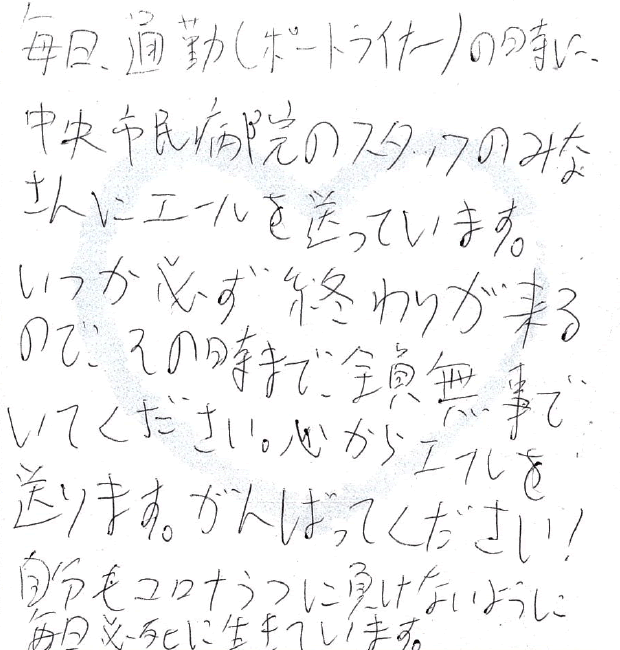 毎日、通勤(ポートライナー)の時に、
中央市民病院のスタッフのみな
さんにエールを送っています。
いつか必ず終わりが来る
ので、その時まで、全員無事で
いてください。心からエールを
送ります。がんばってください!
自分もコロナうつに負けないように
毎日必死に生きています。